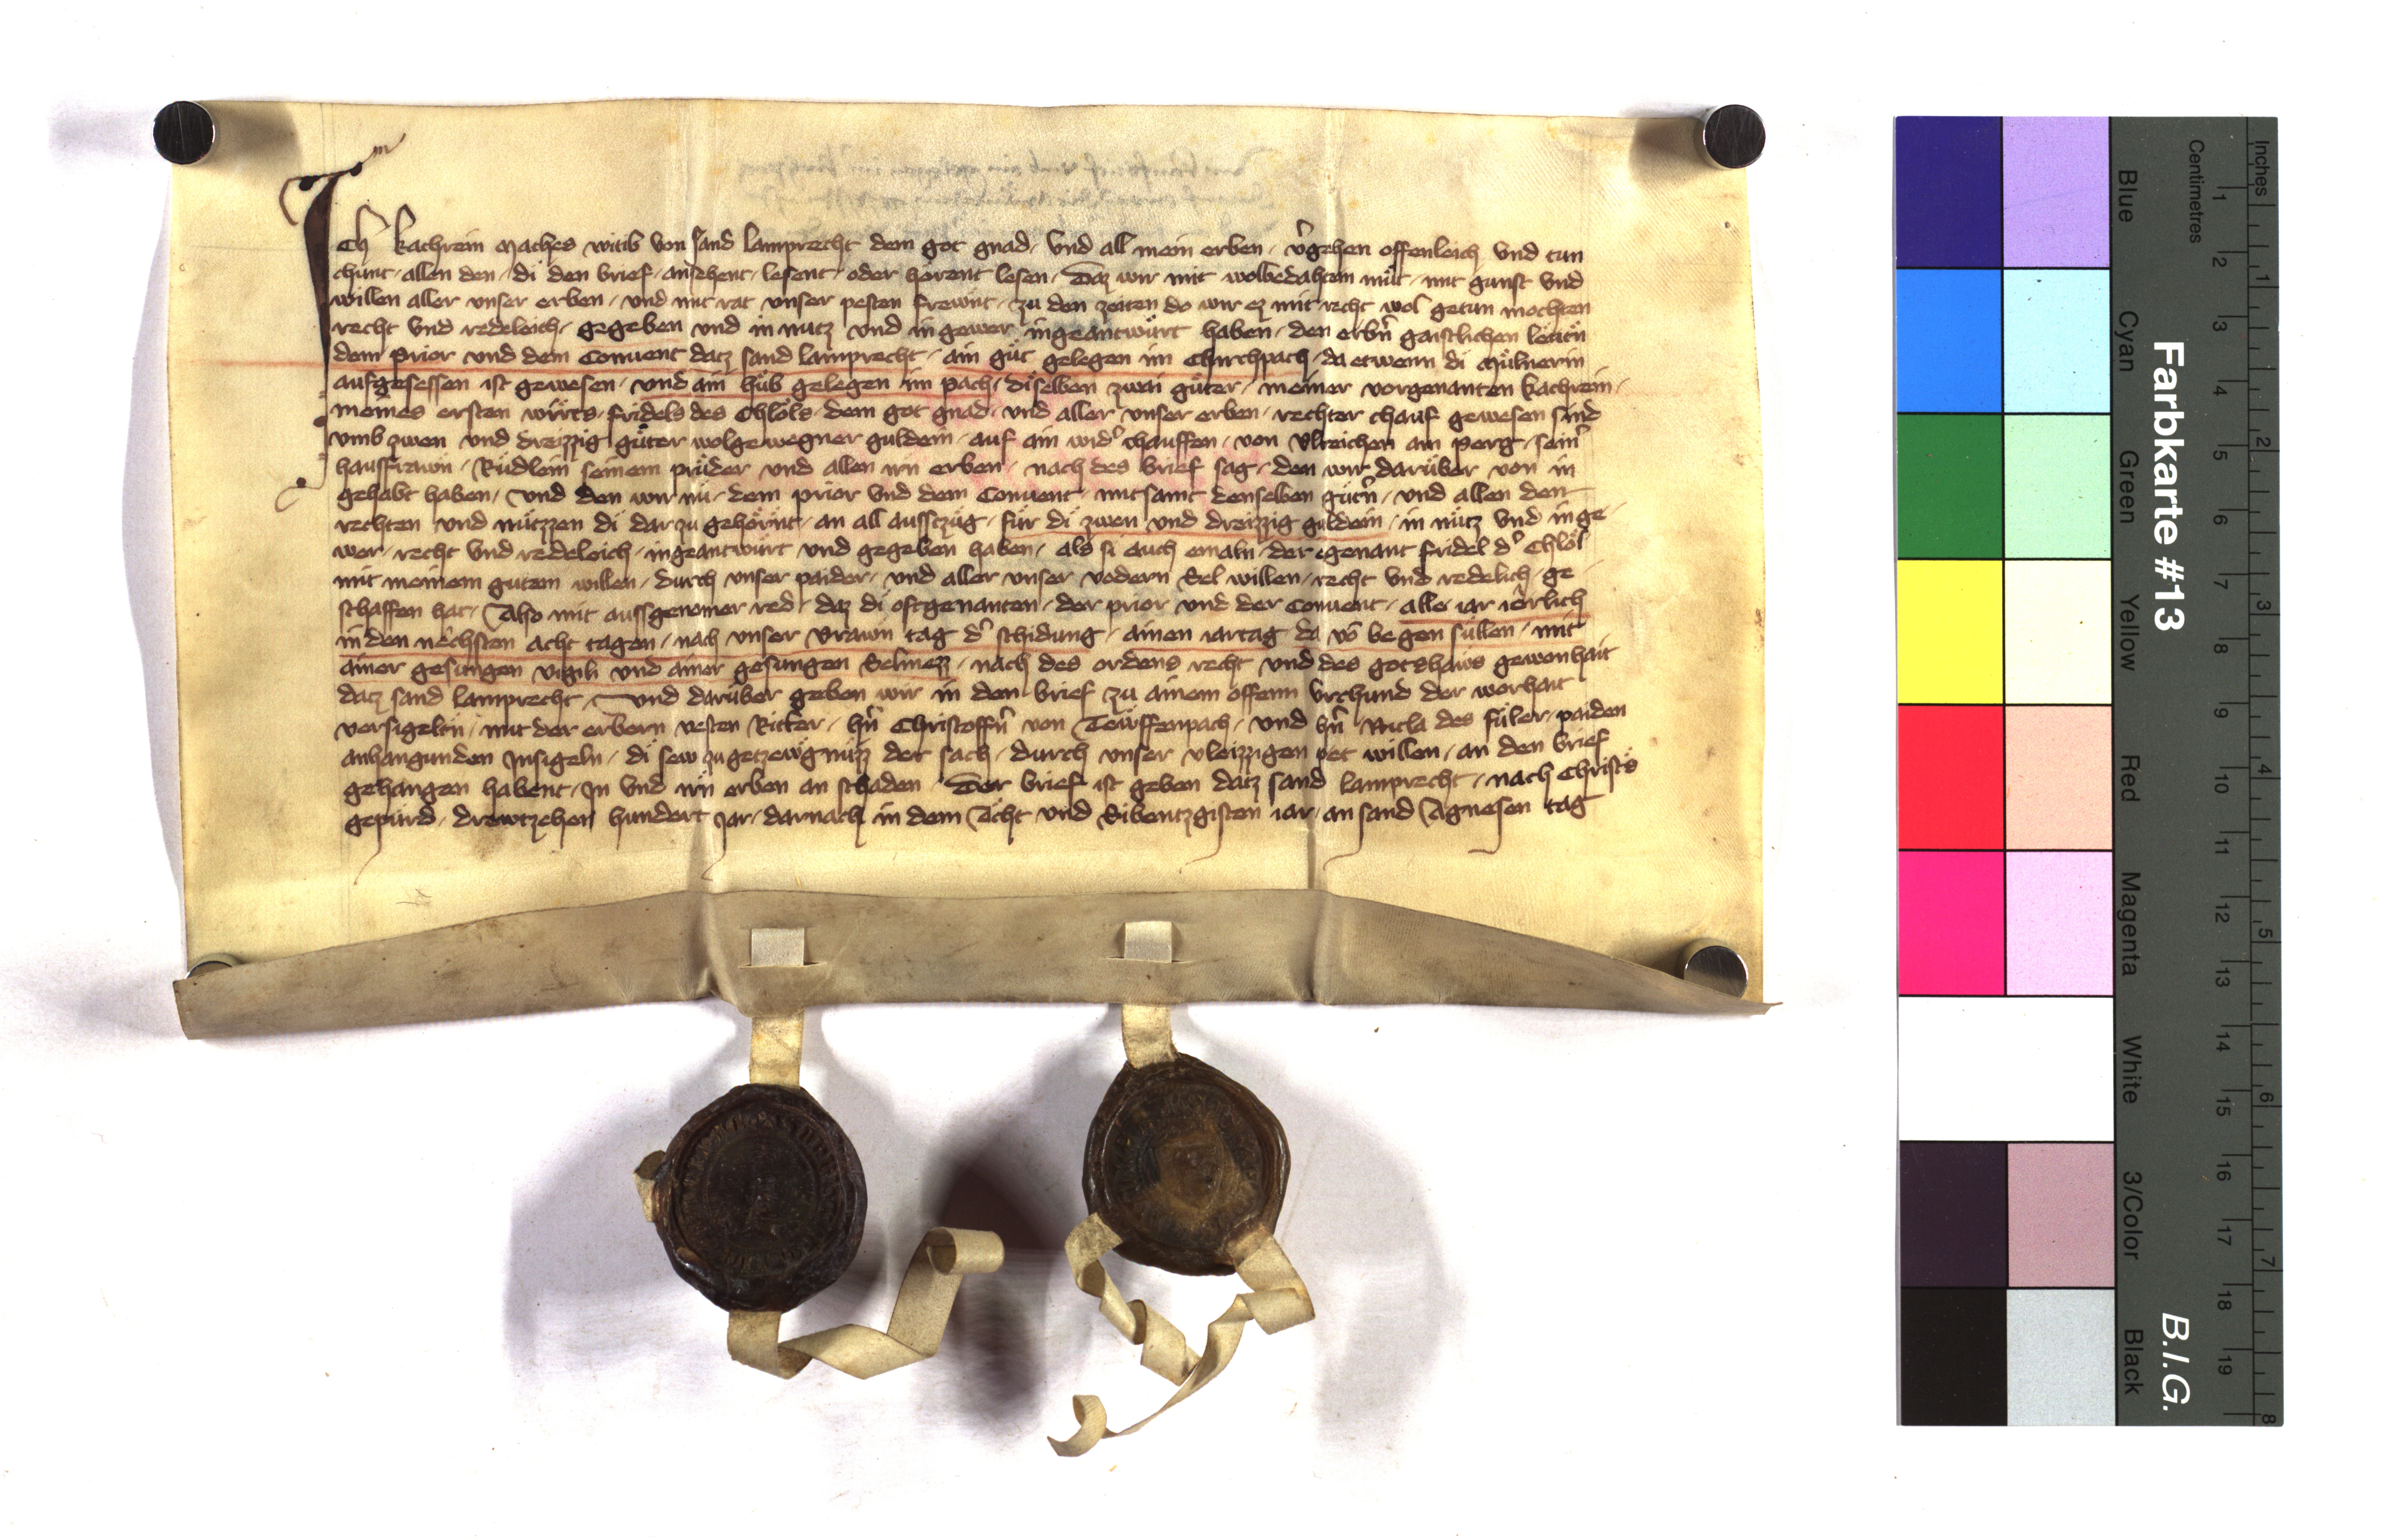 Ich kathrein Mathes witib von sand lamprecht dem got gnad / vnd all mein erben / v̾gehen offenleich vnd tun
chunt / allen den / di den brief / ansehent / lesent / oder hörent lesen / Daz wir mit wolbedahtem müt / mit gunst vnd
willen aller vnser erben / vnd mit rat vnser pesten frewnt / zu den zeiten do wir ez mit recht wol getun mochten
recht vnd redeleich / gegeben vnd in nutz vnd in gewer ingeantwürt haben / den erbn̄ gaistlichen
dem Prior vnd dem Conuent datz sand lamprecht / ain güt gelegen im Chirchpach / da etwenn di Mülnerin
aufgesessen ist gewesen / vnd ain hüb gelegen im pach / diselben zwai güter / meiner vorgenanten kathrein /
meines ersten wirts / fridels des Chlöls / dem got gnad / vnd aller vnser erben / rechter chauf gewesen sind
vmb zwen vnd dreizzig güter wolgewegner guldein / auf ain wid̾ chauffen / von Vlreichen am perg / sein̾
hausfrawn / Rüdlein seinem prüder vnd allen irn erben / nach des brief sag / den wir darüber von in
gehabt haben / vnd den wir nü / dem prior vnd dem Conuent / mitsamt denselben gütn̄ / vnd allen den
rechten vnd nützzen di dar zu gehörnt / an all ausszüg / für di zwen vnd dreizzig guldein / in nütz vnd in ge /
wer / recht vnd redeleich / ingeantwürt vnd gegeben haben / als si auch emaln / der egenant fridel d̾ Chlöl
mit meinem gutem willen / durch vnser paider / vnd aller vnser vodern Sel willen / recht vnd redelich / ge /
schaffen hat / Also mit aussgenomer red / daz di oftgenanten / der prior vnd der Conuent / alle iar iërlich
in den nechsten acht tagen / nach vnser vrawn tag d̾ schidung / ainen iartag da vō begen süllen / mit
ainer gesungen vigili vnd ainer gesungen Selmezz / nach des ordens recht vnd des gotshaws gewonhait
datz sand lamprecht / vnd darüber geben wir in den brief zu ainem offenn vrchund der worhait
versigeltn / mit der erbern vesten Ritter / hn̄ Christoffn̄ von Tewffenpach / vnd hn̄ Nicla des füler / paiden
anhangunden Insigeln / di sew zu getzewgnüzz der sach / durch vnser vleizzigen pet willen / an den brief
gehangen habent / In vnd irn erben an schaden / Der brief ist geben datz sand lamprecht / nach Christs
gepürd / drewtzehen hundert Jar / darnach in dem Acht vnd Sibentzgisten iar / an sand Agnesen tag
Farbkarte #13
B.I.G.
Inches
Centimetres
1 2 3 4 5 6 7 8
1 2 3 4 5 6 7 8 9 10 11 12 13 14 15 16 17 18 19
Blue
Cyan
Green
Yellow
Red
Magenta
White
3/Color
Black